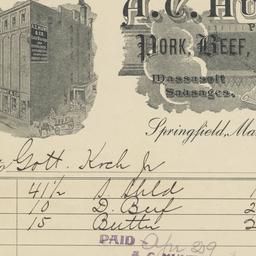 A. C. HU
PORK, BEEF,
Massasoit
Sausages.
Springfield, Ma
Gott. Koch Jr
41½ S. Shld
10 D. Beef 2
15 Butter 2
PAID Apr 29